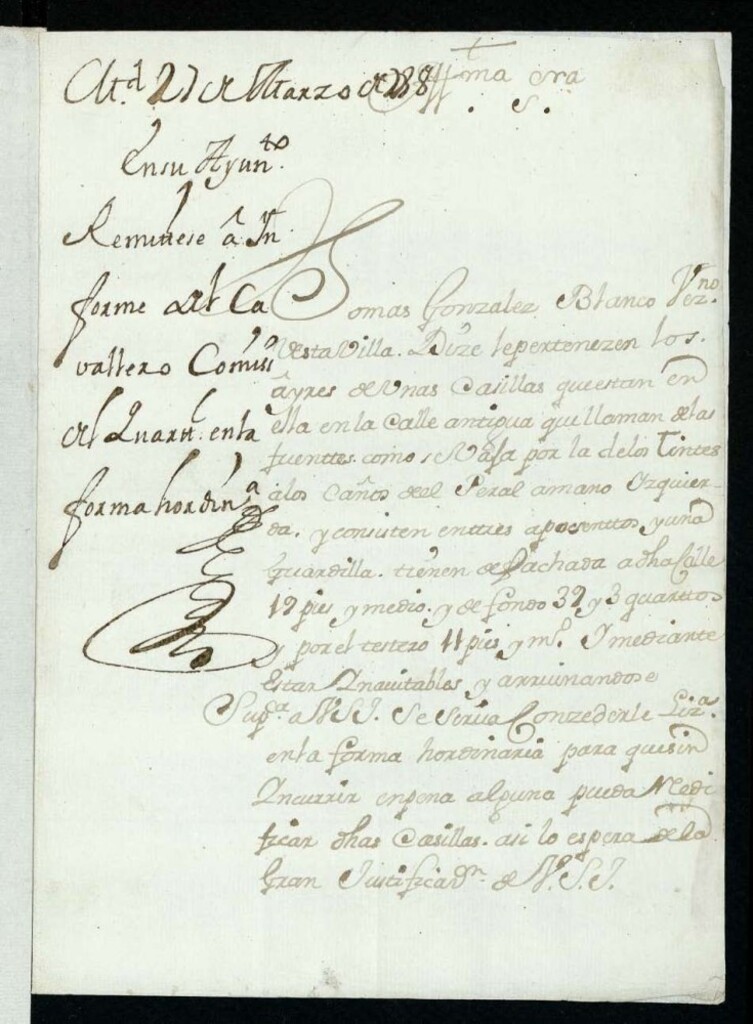 Md. 27 de Marzo de 1788
En su Ayunto.
Remitese â In
forme del Ca
vallero Comiso.
del Quartl. en la
forma hordina.
Yllma. Sra.
S.
Tomas Gonzalez Blanco Vezno.
de esta Villa. Dize le pertenezen los
ayres de Unas Casillas que estan en
ella en la Calle antigua que llaman de las
fuenttes. como se Vaja por la de los Tintes
a los Caños del Peral a mano Ozquier-
da. y consisten en ttres aposenttos, y una
Guardilla. tienen de fachada a dha Calle
19 pies y medio. y de fondo 39 y 3 quarttos
y por el testero 11 pies y mo. Y mediante
Estar Ynavitables y arruinandose
Supca. a V.S.I. Se Sirva Conzederle Liza.
en la forma hordinaria para que sin
Yncurrir en pena alguna pueda Redi
ficar dhas Casillas. asi lo espera de la
Gran Justificazn. de V.S.I.